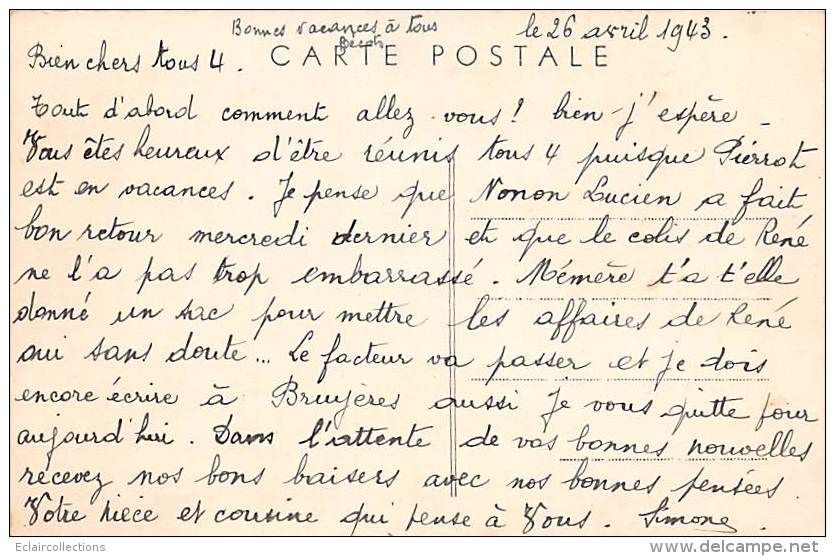 Bonnes vacances à tous
le 26 avril 1943.
CARTE POSTALE
Bien chers tous 4.
Tout d'abord comment allez vous! bien j'espère -
Vous êtes heureux d'être réunis tous 4 puisque Pierrot
est en vacances. Je pense que Nonon Lucien a fait
bon retour mercredi dernier et que le colis de René
ne l'a pas trop embarrassé. Mémère t'a t'elle
donné un sac pour mettre les affaires de René
oui sans doute... Le facteur va passer et je dois
encore écrire à Bruyères aussi Je vous quitte pour
aujourd'hui. Dans l'attente de vos bonnes nouvelles
recevez nos bons baisers avec nos bonnes pensées.
Votre nièce et cousine qui pense à Vous. Simone
Eclaircollections
www.delcampe.net